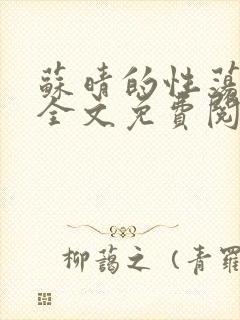 蘇晴的性蕩
全文免費閱
柳藹之 (青羅